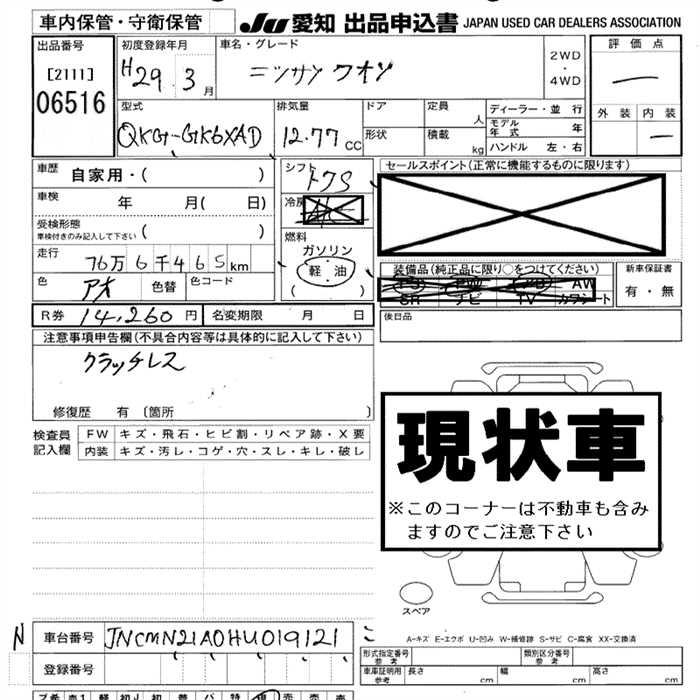 車内保管・守衛保管
JU 愛知 出品申込書 JAPAN USED CAR DEALERS ASSOCIATION
出品番号
[2111]
06516
初度登録年月
H29. 3月
車名・グレード
ニッサン クオン
2WD
・
4WD
評価点
外装 内装
型式
QKG-GK6XAD
排気量
12.77 CC
ドア
形状
定員 人
積載 kg
ディーラー・並 行
モデル年式 年
ハンドル 左・右
車歴 自家用・( )
シフト
セールスポイント(正常に機能するものに限ります)
車検 年 月( 日)
冷房 A/C
受検形態
車検付きのみ記入して下さい ( )
燃料
ガソリン
軽油
( )
走行 76万6千465km
装備品(純正品に限り○をつけてください)
PS PW AB AW
SR ナビ TV カワシート
新車保証書
有・無
色 アオ 色替 色コード
R券 14,260円 名変期限 月 日
後日品
注意事項申告欄(不具合内容等は具体的に記入して下さい)
クラッチレス
修復歴 有 〔箇所 〕
検査員記入欄
FW キズ・飛石・ヒビ割・リペア跡・X要
内装 キズ・汚レ・コゲ・穴・スレ・キレ・破レ
現状車
※このコーナーは不動車も含み
ますのでご注意下さい
スペア
N 車台番号 JNCMN21A0HU019121
登録番号
A-キズ E-エクボ U-凹み W-補修跡 S-サビ C-腐食 XX-交換済
型式指定番号 参考
類別区分番号 参考
車庫証明用 参考 長さ cm 幅 cm 高さ cm